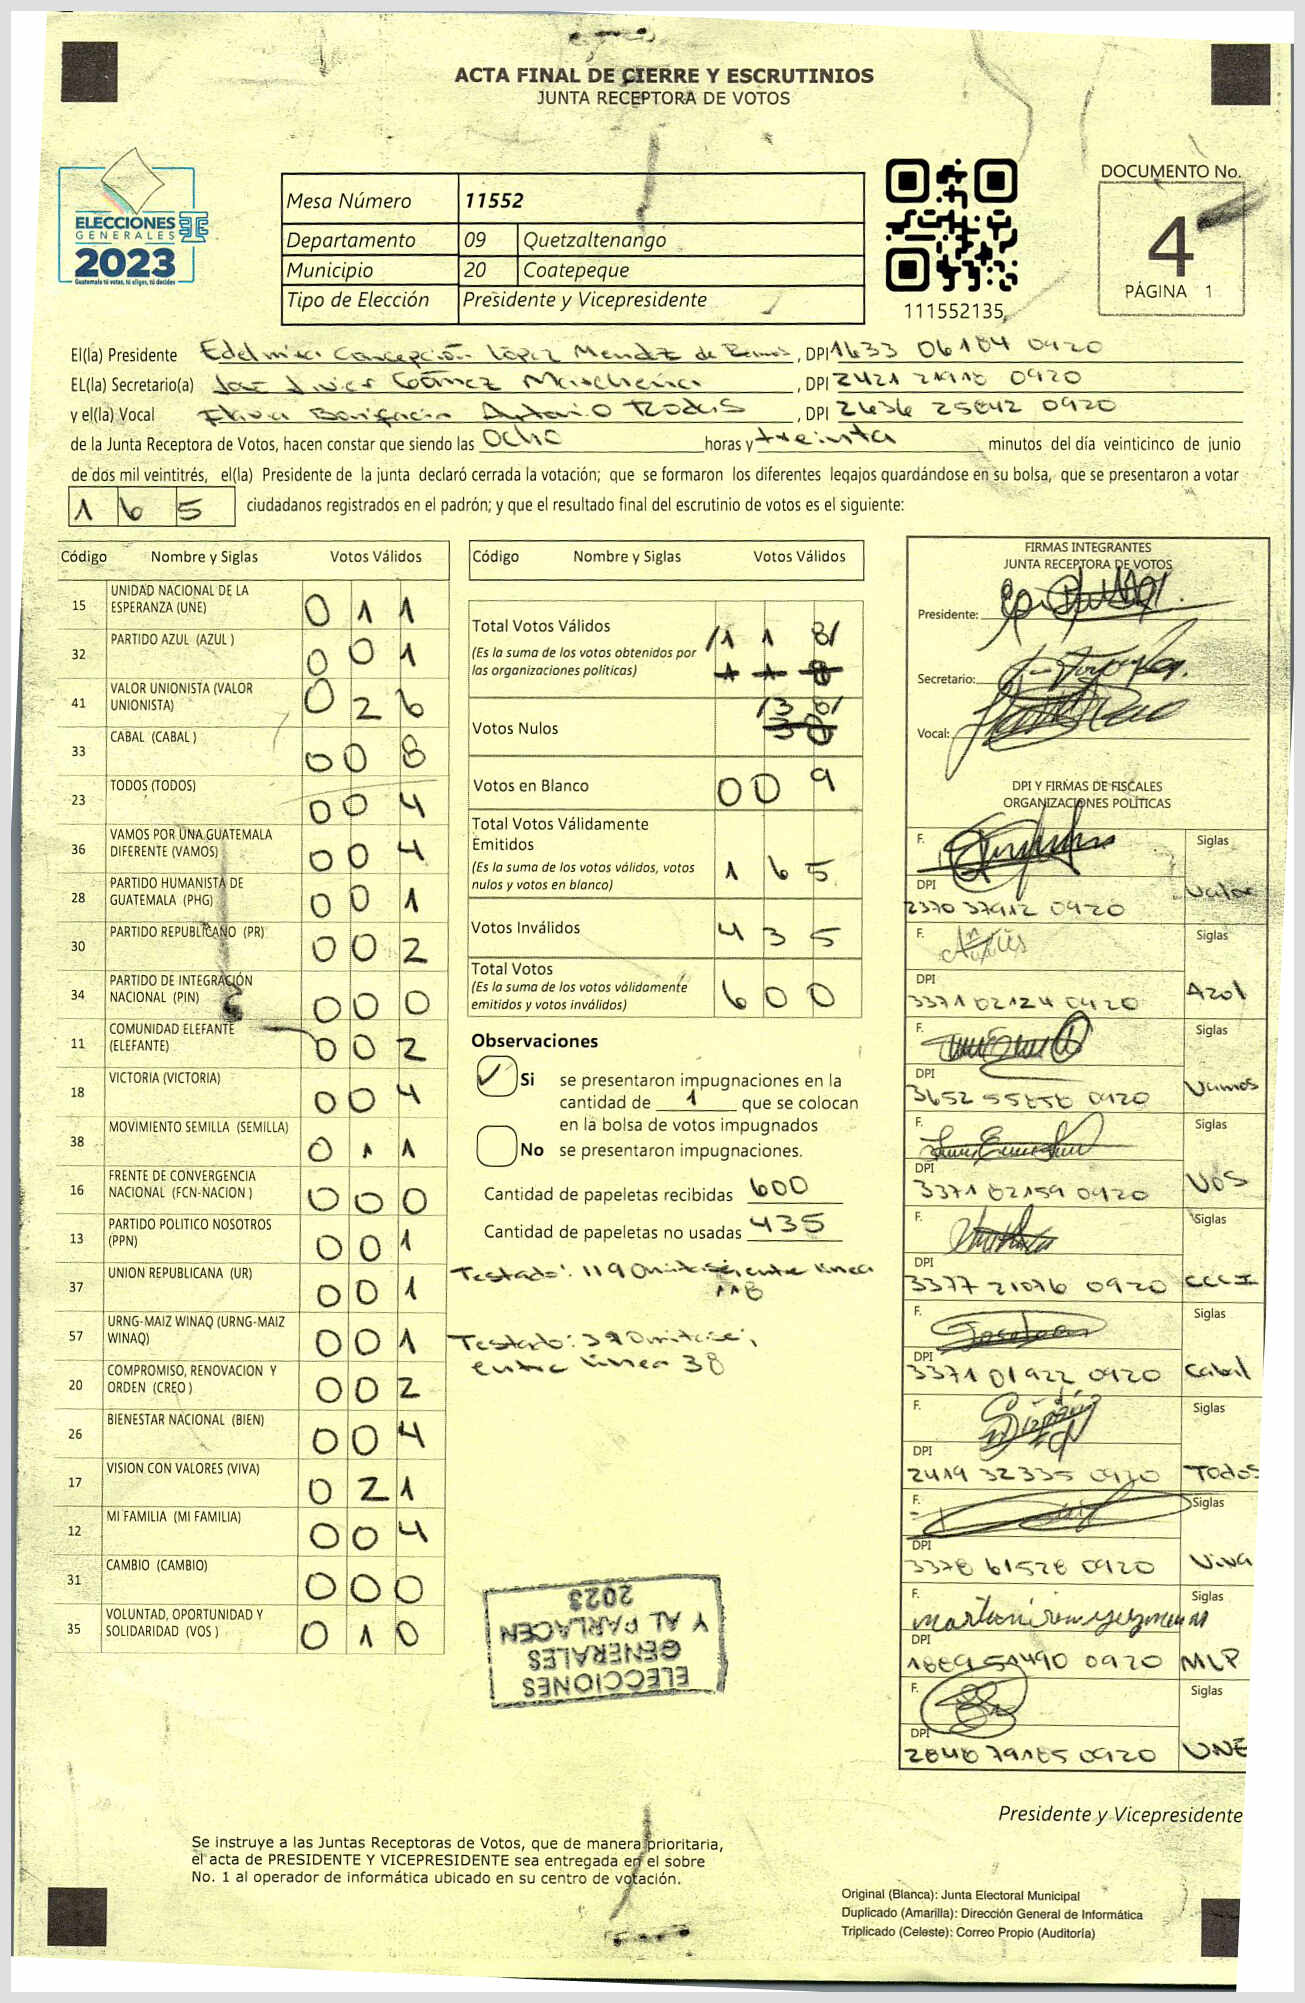 ACTA FINAL DE CIERRE Y ESCRUTINIOS
JUNTA RECEPTORA DE VOTOS
ELECCIONES
GENERALES
2023
Guatemala tú votas, tú eliges, tú decides
Mesa Número 11552
Departamento 09 Quetzaltenango
Municipio 20 Coatepeque
Tipo de Elección Presidente y Vicepresidente
111552135
DOCUMENTO No.
4
PÁGINA 1
El(la) Presidente Edelmira Concepción López Mendez de , DPI 1633 06184 0920
EL(la) Secretario(a) , DPI 2421 21918 0920
y el(la) Vocal Bonifacia Antonio , DPI 2636 25842 0920
de la Junta Receptora de Votos, hacen constar que siendo las Ocho horas y treinta minutos del día veinticinco de junio
de dos mil veintitrés, el(la) Presidente de la junta declaró cerrada la votación; que se formaron los diferentes legajos guardándose en su bolsa, que se presentaron a votar
165 ciudadanos registrados en el padrón; y que el resultado final del escrutinio de votos es el siguiente:
Código Nombre y Siglas Votos Válidos
15 UNIDAD NACIONAL DE LA ESPERANZA (UNE) 011
32 PARTIDO AZUL (AZUL ) 001
41 VALOR UNIONISTA (VALOR UNIONISTA) 026
33 CABAL (CABAL ) 008
23 TODOS (TODOS) 004
36 VAMOS POR UNA GUATEMALA DIFERENTE (VAMOS) 004
28 PARTIDO HUMANISTA DE GUATEMALA (PHG) 001
30 PARTIDO REPUBLICANO (PR) 002
34 PARTIDO DE INTEGRACIÓN NACIONAL (PIN) 000
11 COMUNIDAD ELEFANTE (ELEFANTE) 002
18 VICTORIA (VICTORIA) 004
38 MOVIMIENTO SEMILLA (SEMILLA) 011
16 FRENTE DE CONVERGENCIA NACIONAL (FCN-NACION ) 000
13 PARTIDO POLITICO NOSOTROS (PPN) 001
37 UNION REPUBLICANA (UR) 001
57 URNG-MAIZ WINAQ (URNG-MAIZ WINAQ) 001
20 COMPROMISO, RENOVACION Y ORDEN (CREO ) 002
26 BIENESTAR NACIONAL (BIEN) 004
17 VISION CON VALORES (VIVA) 021
12 MI FAMILIA (MI FAMILIA) 004
31 CAMBIO (CAMBIO) 000
35 VOLUNTAD, OPORTUNIDAD Y SOLIDARIDAD (VOS ) 010
Código Nombre y Siglas Votos Válidos
Total Votos Válidos /118/
(Es la suma de los votos obtenidos por
las organizaciones políticas)
Votos Nulos /38/
Votos en Blanco 009
Total Votos Válidamente
Emitidos
(Es la suma de los votos válidos, votos
nulos y votos en blanco) 165
Votos Inválidos 435
Total Votos
(Es la suma de los votos válidamente
emitidos y votos inválidos) 600
Observaciones
Si se presentaron impugnaciones en la
cantidad de 1 que se colocan
en la bolsa de votos impugnados
No se presentaron impugnaciones.
Cantidad de papeletas recibidas 600
Cantidad de papeletas no usadas 435
Testado: 119 Omitase; entre linea
118
Testado: 39 Omitase;
entre linea 38
ELECCIONES
GENERALES
Y AL PARLACEN
2023
FIRMAS INTEGRANTES
JUNTA RECEPTORA DE VOTOS
Presidente:
Secretario:
Vocal:
DPI Y FIRMAS DE FISCALES
ORGANIZACIONES POLÍTICAS
F. Siglas
DPI
2370 37912 0920 Valor
F. Siglas
DPI
3371 02124 0920 Azul
F. Siglas
DPI
3652 55858 0920 Vamos
F. Siglas
DPI
3371 02159 0920 VOS
F. Siglas
DPI
3377 21076 0920
F. Siglas
DPI
3371 01922 0920 Cabal
F. Siglas
DPI
2419 32335 0920 Todos
F. Siglas
DPI
3378 61528 0920 Viva
F. Siglas
DPI
1889 51490 0920 MLP
F. Siglas
DPI
2848 79185 0920 UNE
Presidente y Vicepresidente
Se instruye a las Juntas Receptoras de Votos, que de manera prioritaria,
el acta de PRESIDENTE Y VICEPRESIDENTE sea entregada en el sobre
No. 1 al operador de informática ubicado en su centro de votación.
Original (Blanca): Junta Electoral Municipal
Duplicado (Amarilla): Dirección General de Informática
Triplicado (Celeste): Correo Propio (Auditoría)